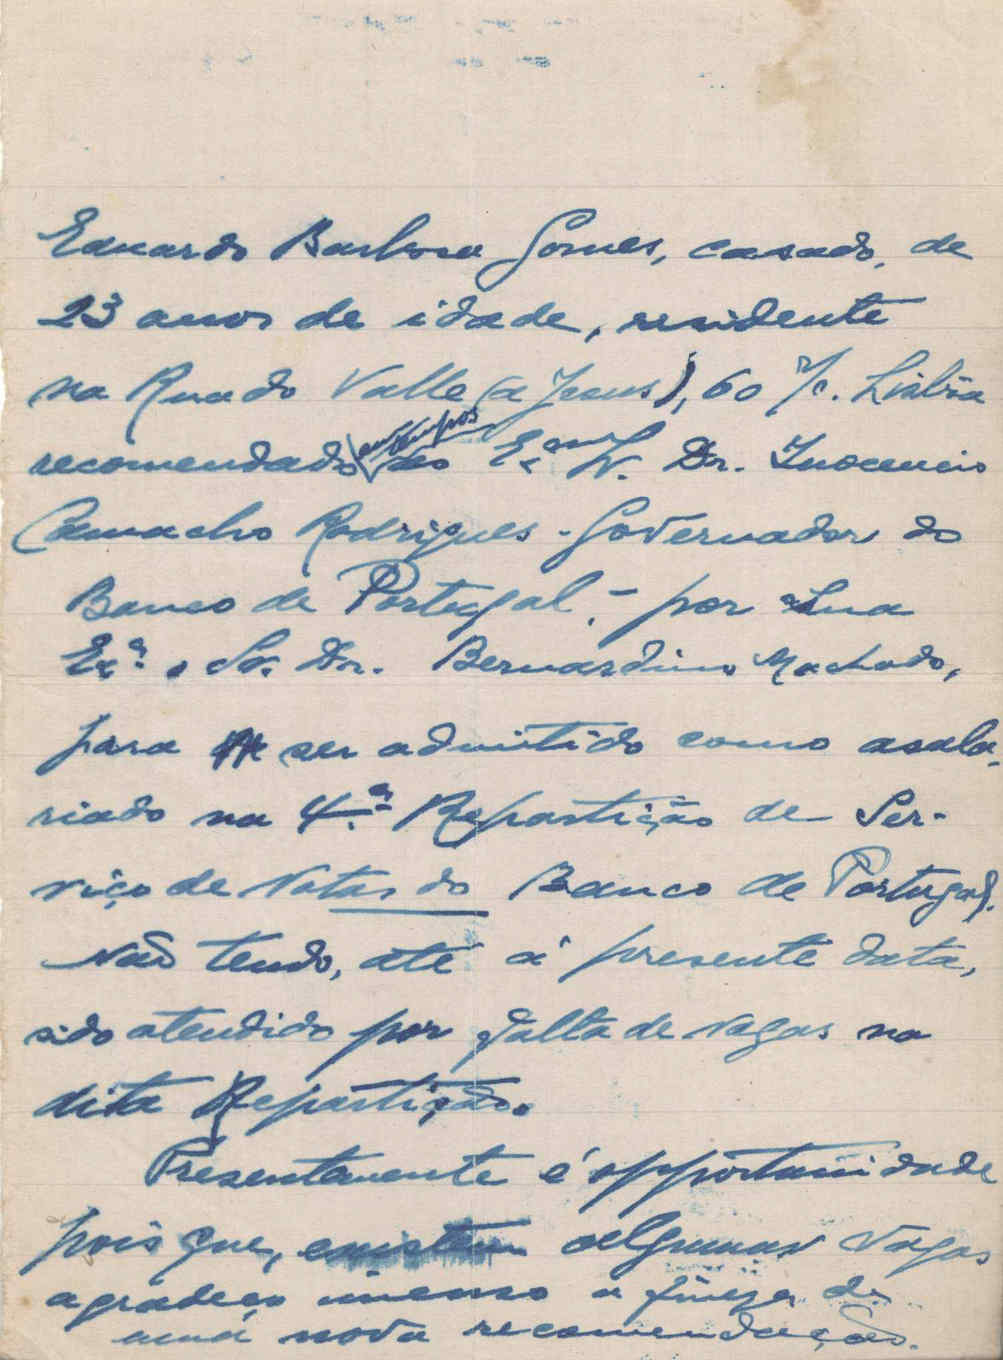 Eduardo Barbosa Gomes, casado, de
23 anos de idade, residente
na Rua do Valle (a Jesus), 60 r/c. Lisbôa
em tempos
recomendado ao Exmo Sr. Dr. Inocencio
Camacho Rodrigues - Governador do
Banco de Portugal, - por Sua
Exª. o Sr. Dr. Bernardino Machado,
para ser admitido como asala-
riado na 4.ª Repartição de Ser-
viço de Notas do Banco de Portugal.
Não tendo, até á presente data,
sido atendido por falta de vagas na
dita Repartição.
Presentemente é opportunidade
pois que, existem algumas vagas
agradeço imenso a fineza de
uma nova recomendação.